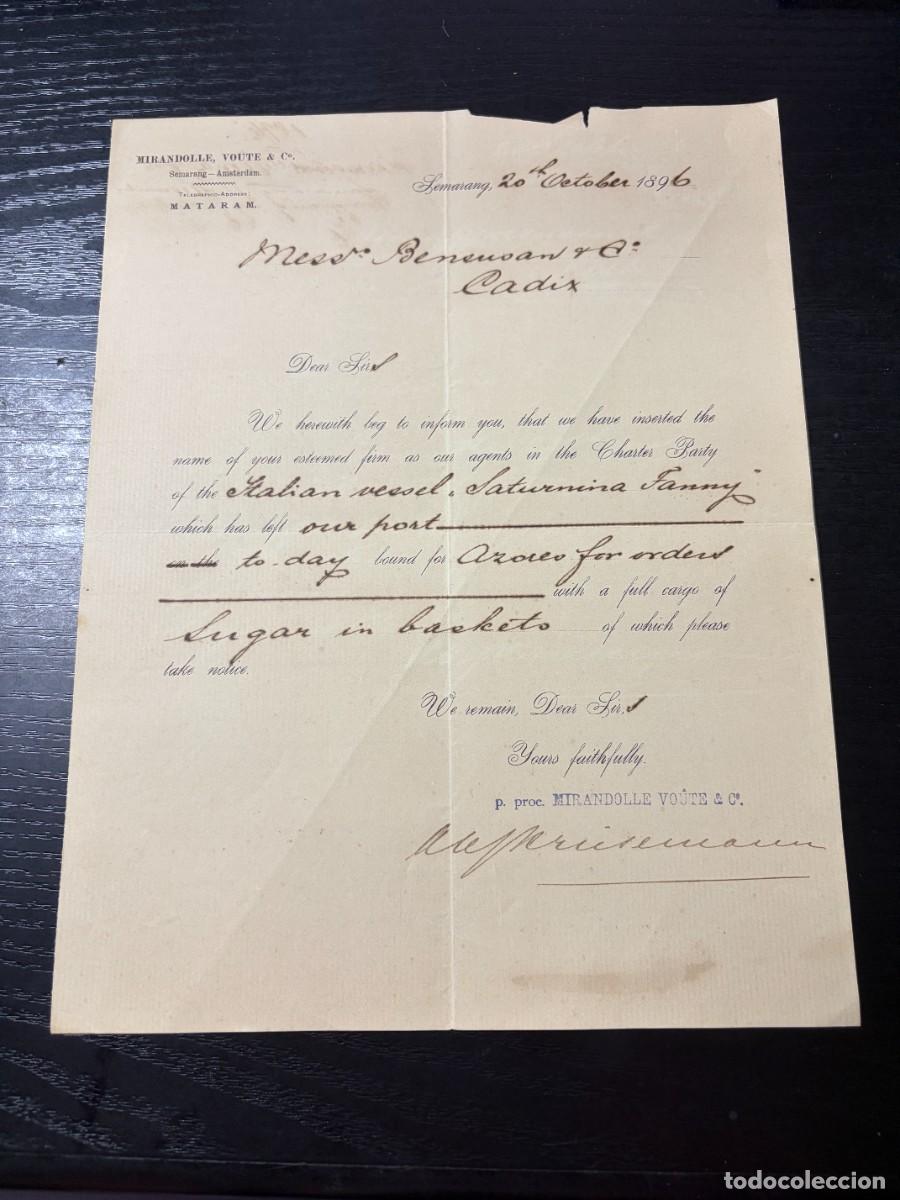 MIRANDOLLE, VOÛTE & Co.
Semarang—Amsterdam.
TELEGRAPHIC-ADDRESS:
MATARAM.
Semarang, 20th October 1896
Messrs. Bensusan & Co.
Cadix
Dear Sirs
We herewith beg to inform you, that we have inserted the
name of your esteemed firm as our agents in the Charter Party
of the Italian vessel „Saturnina Fanny"
which has left our port
on the to-day bound for Azores for orders
with a full cargo of
Sugar in baskets of which please
take notice.
We remain, Dear Sirs,
Yours faithfully.
p. proc. MIRANDOLLE VOÛTE & Co.
todocoleccion